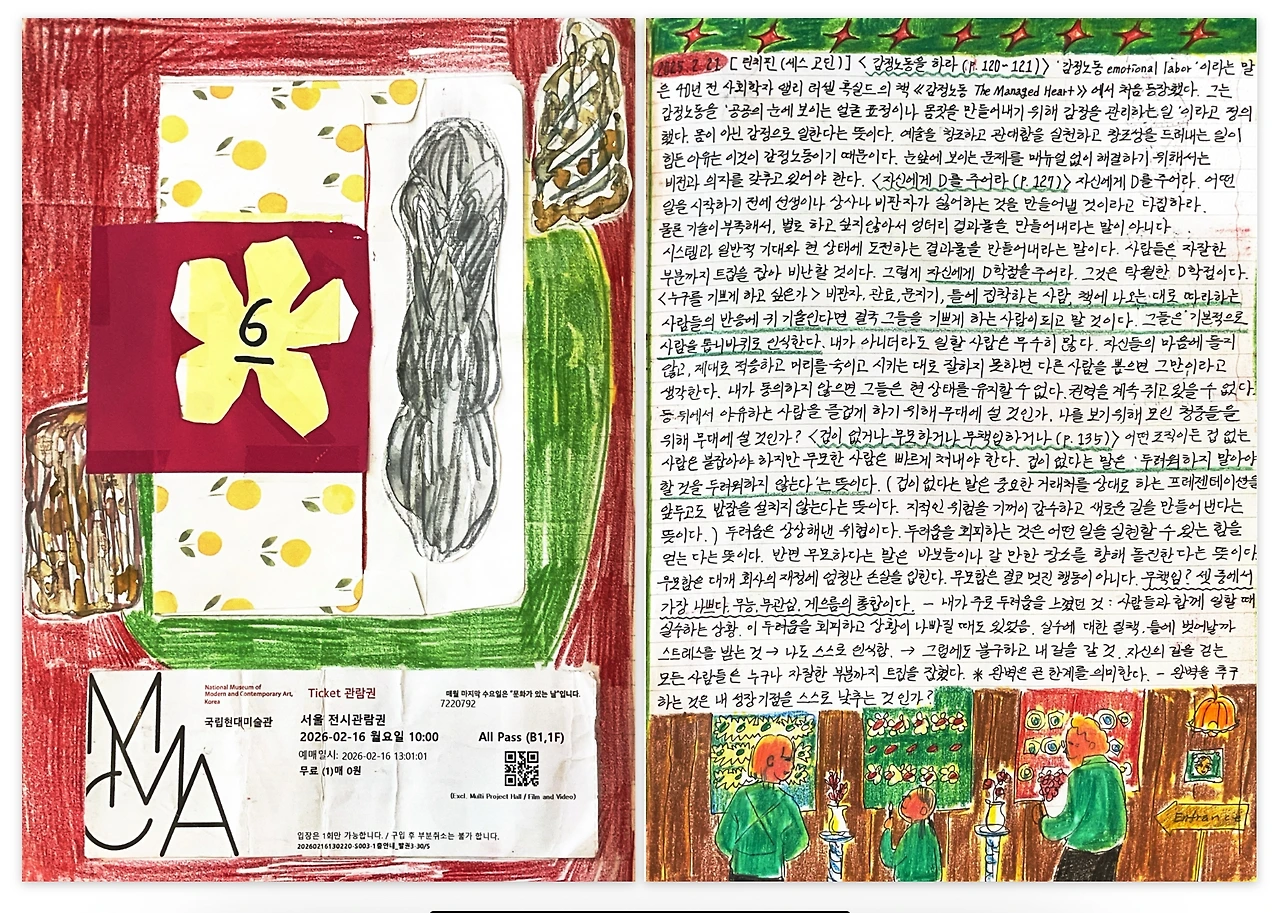 6
MMCA
National Museum of
Modern and Contemporary Art,
Korea
국립현대미술관
Ticket 관람권
서울 전시관람권
2026-02-16 월요일 10:00
예매일시: 2026-02-16 13:01:01
무료 (1)매 0원
매월 마지막 수요일은 "문화가 있는 날"입니다.
7220792
All Pass (B1,1F)
(Excl. Multi Project Hall / Film and Video)
입장은 1회만 가능합니다. / 구입 후 부분취소는 불가 합니다.
20260216130220-S003-1층안내_발권3-30/5
2025.2.21 [린치핀 (세스 고딘)] <감정노동을 하라 (p.120~121)> '감정노동 emotional labor'이라는 말
은 40년 전 사회학자 앨리 러셀 혹실드의 책 《감정노동 The Managed Heart》에서 처음 등장했다. 그는
감정노동을 '공공의 눈에 보이는 얼굴 표정이나 몸짓을 만들어내기 위해 감정을 관리하는 일'이라고 정의
했다. 몸이 아닌 감정으로 일한다는 뜻이다. 예술을 창조하고 관대함을 실천하고 창조성을 드러내는 일이
힘든 이유는 이것이 감정노동이기 때문이다. 눈앞에 보이는 문제를 매뉴얼 없이 해결하기 위해서는
비전과 의지를 갖추고 있어야 한다. <자신에게 D를 주어라 (p.127)> 자신에게 D를 주어라. 어떤
일을 시작하기 전에 선생이나 상사나 비판자가 싫어하는 것을 만들어낼 것이라고 다짐하라.
물론 기술이 부족해서, 별로 하고 싶지 않아서 엉터리 결과물을 만들어내라는 말이 아니다.
시스템과 일반적 기대와 현 상태에 도전하는 결과물을 만들어내라는 말이다. 사람들은 자잘한
부분까지 트집을 잡아 비난할 것이다. 그렇게 자신에게 D학점을 주어라. 그것은 탁월한 D학점이다.
<누구를 기쁘게 하고 싶은가> 비판자, 관료, 문지기, 틀에 집착하는 사람, 책에 나오는 대로 따라하는
사람들의 반응에 귀 기울인다면 결국 그들을 기쁘게 하는 사람이 되고 말 것이다. 그들은 '기본적으로
사람을 톱니바퀴로 인식한다. 내가 아니더라도 일할 사람은 무수히 많다. 자신들의 마음에 들지
않고, 제대로 적응하고 머리를 숙이고 시키는 대로 잘하지 못하면 다른 사람을 뽑으면 그만이라고
생각한다. 내가 동의하지 않으면 그들은 현 상태를 유지할 수 없다. 권력을 계속 쥐고 있을 수 없다.
등 뒤에서 야유하는 사람을 즐겁게 하기 위해 무대에 설 것인가. 나를 보기 위해 모인 청중들을
위해 무대에 설 것인가? <겁이 없거나 무모하거나 무책임하거나 (p.135)> 어떤 조직이든 겁 없는
사람은 붙잡아야 하지만 무모한 사람은 빠르게 쳐내야 한다. 겁이 없다는 말은 '두려워하지 말아야
할 것을 두려워하지 않는다'는 뜻이다. (겁이 없다는 말은 중요한 거래처를 상대로 하는 프레젠테이션을
앞두고도 밤잠을 설치지 않는다는 뜻이다. 지적인 위험을 기꺼이 감수하고 새로운 길을 만들어 낸다는
뜻이다.) 두려움은 상상해낸 위협이다. 두려움을 회피하는 것은 어떤 일을 실현할 수 있는 힘을
얻는다는 뜻이다. 반면 무모하다는 말은 바보들이나 갈 만한 장소를 향해 돌진한다는 뜻이다.
무모함은 대개 회사의 재정에 엄청난 손실을 입힌다. 무모함은 결코 멋진 행동이 아니다. 무책임? 셋 중에서
가장 나쁘다. 무능, 무관심, 게으름의 총합이다. - 내가 주로 두려움을 느꼈던 것 : 사람들과 함께 일할 때
실수하는 상황. 이 두려움을 회피하고 상황이 나빠질 때도 있었음. 실수에 대한 질책, 틀에 벗어날까
스트레스를 받는 것 → 나도 스스로 인식함. → 그럼에도 불구하고 내 길을 갈 것. 자신의 길을 걷는
모든 사람들은 누구나 자잘한 부분까지 트집을 잡혔다. * 완벽은 곧 한계를 의미한다. - 완벽을 추구
하는 것은 내 성장기점을 스스로 낮추는 것인가?
Entrance